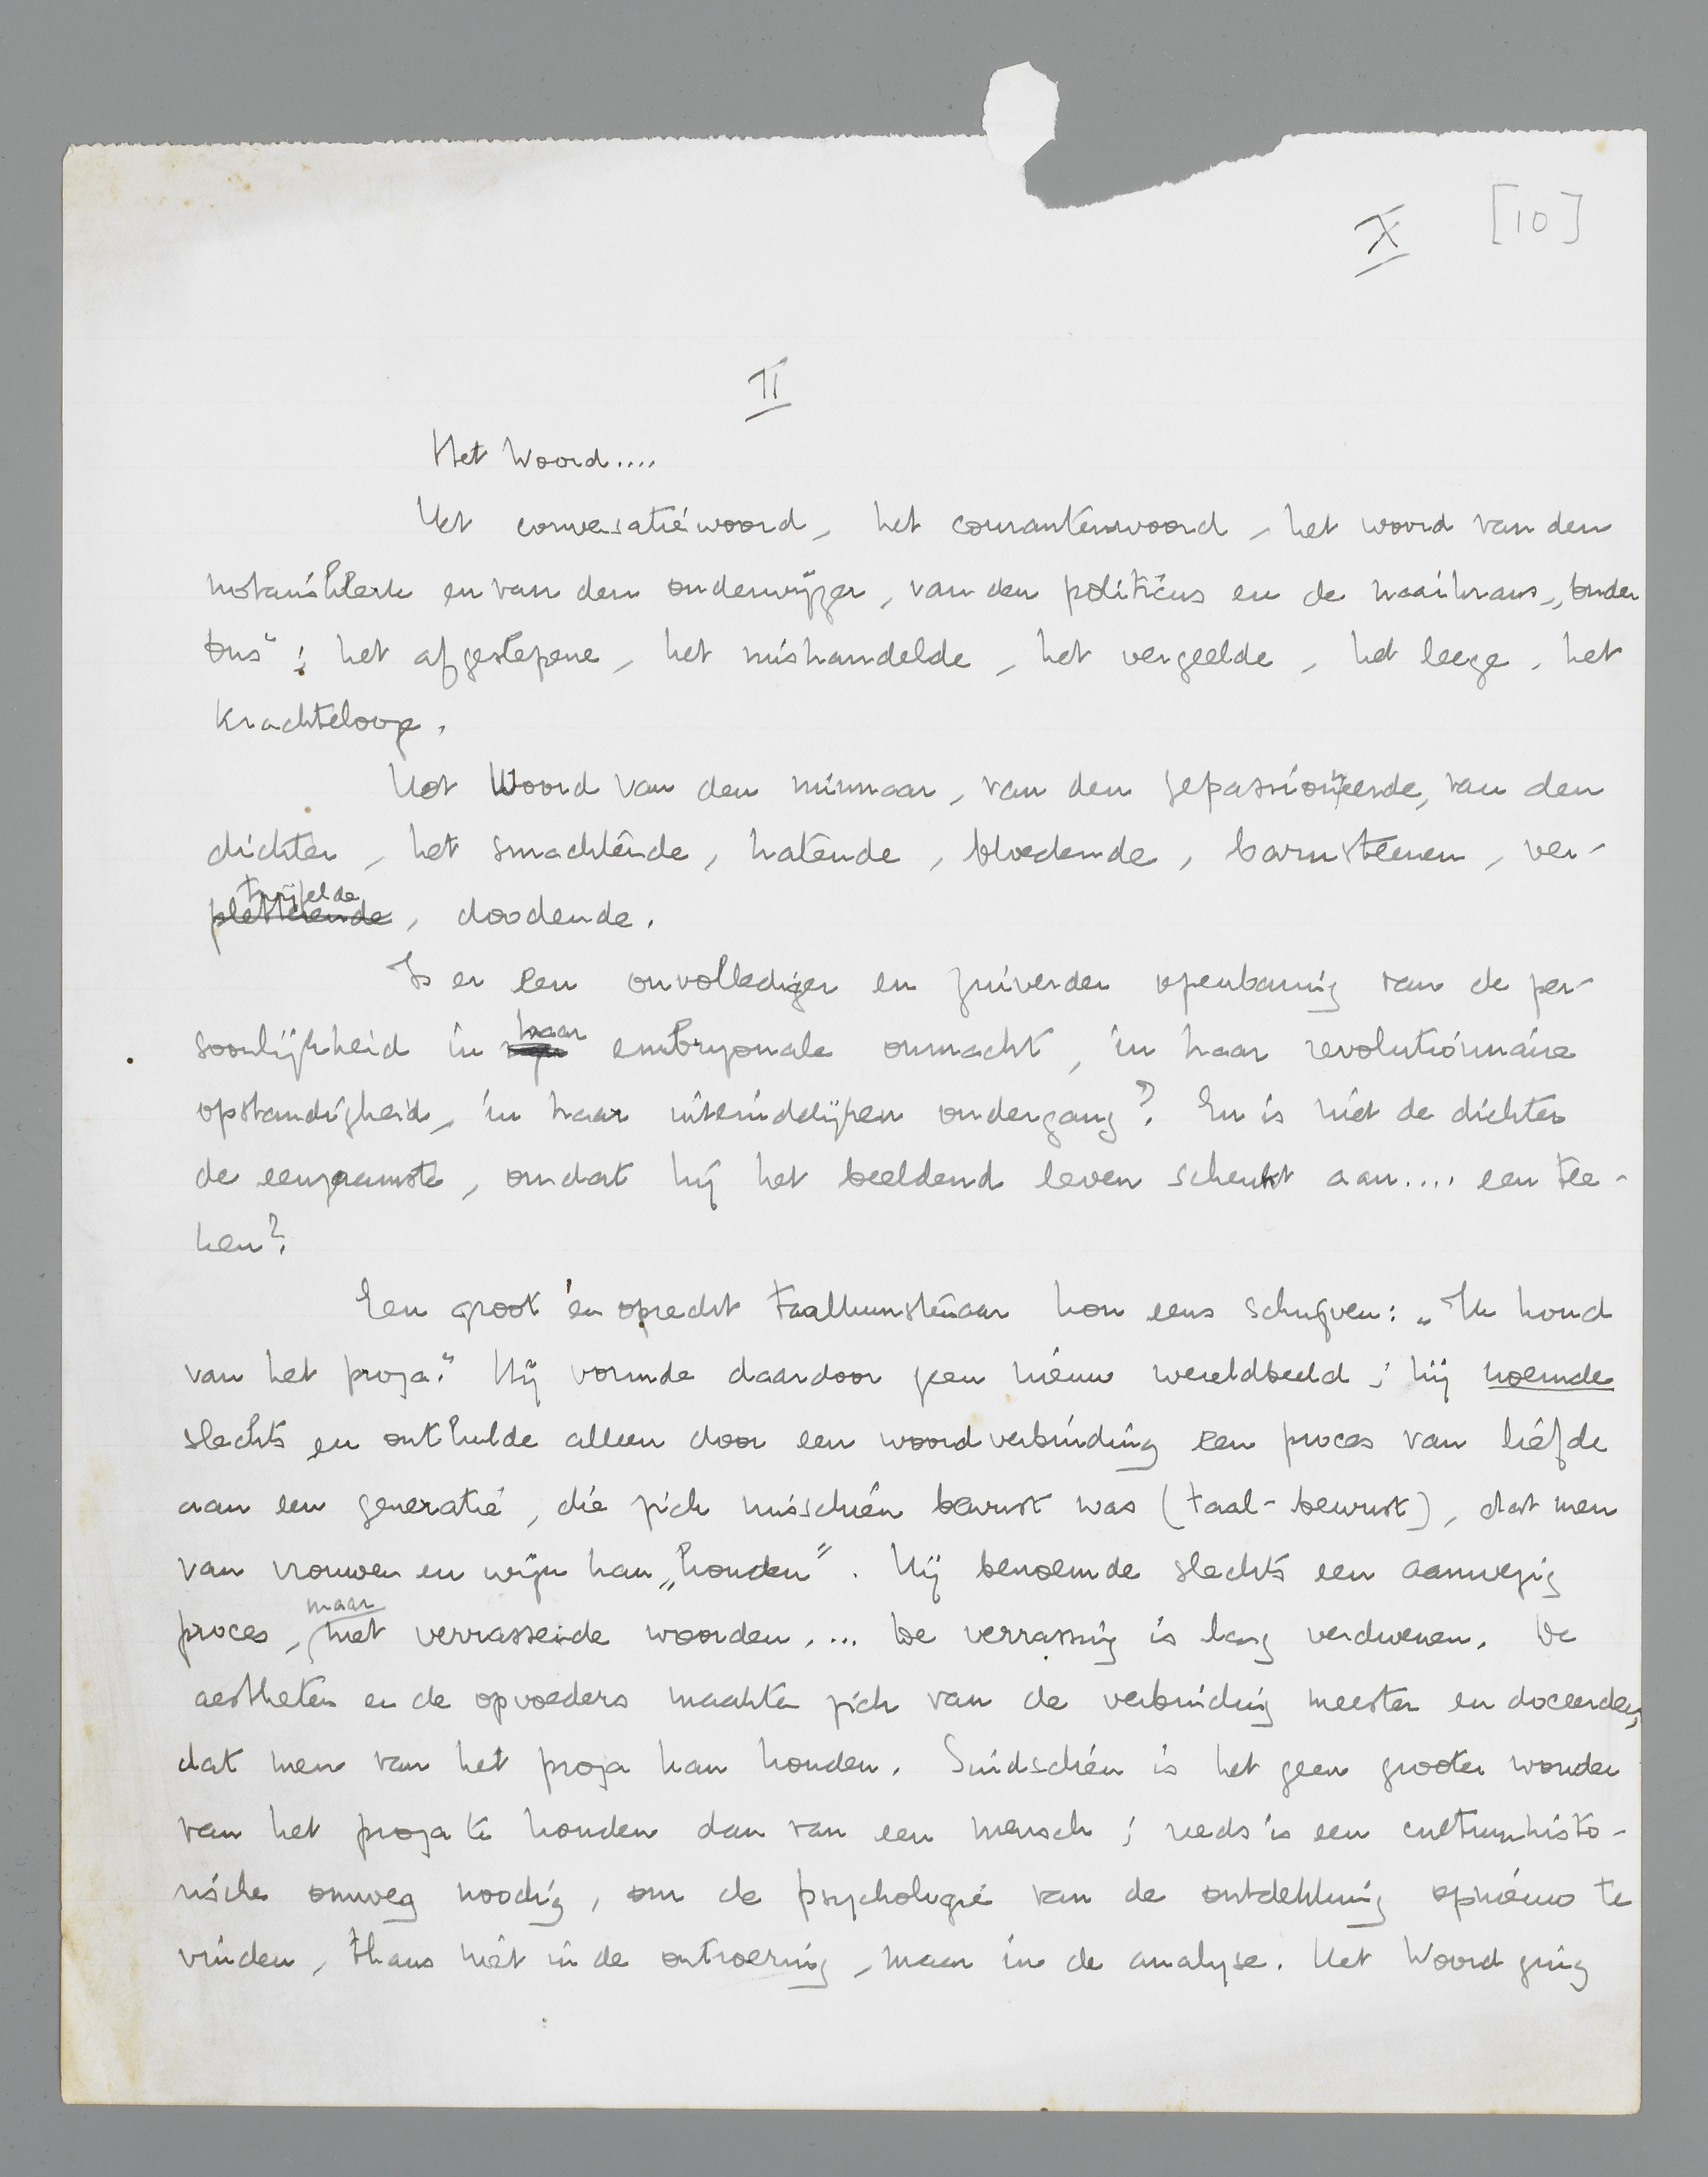 X [10]
II
Het Woord....
Het conversatiewoord, het courantenwoord, het woord van den
notarisklerk en van den onderwijzer, van den politicus en de naaikrans „onder
ons”; het afgesletene, het mishandelde, het vergeelde, het leege, het
krachtelooze.
Het Woord van den minnaar, van den gepassioneerde, van den
dichter, het smachtende, hatende, bloedende, barnsteenen, ver-
twijfelde, doodende.
Is er een onvollediger en zuiverder openbaring van de per-
soonlijkheid in haar embryonale onmacht, in haar revolutionnaire
opstandigheid, in haar uiteindelijken ondergang? En is niet de dichter
de eenzaamste, omdat hij het beeldend leven schenkt aan.... een tee-
ken?
Een groot en oprecht taalkunstenaar kon eens schrijven: „Ik houd
van het proza.” Hij vormde daardoor geen nieuw wereldbeeld; hij noemde
slechts en onthulde alleen door een woordverbinding een proces van liefde
aan een generatie, die zich misschien bewust was (taal-bewust), dat men
van vrouwen en wijn kan „houden”. Hij benoemde slechts een aanwezig
proces, maar met verrassende woorden.... De verrassing is lang verdwenen. De
aestheten en de opvoeders maakten zich van de verbinding meester en doceerden,
dat men van het proza kan houden. Sindsdien is het geen grooter wonder
van het proza te houden dan van een mensch; reeds is een cultuurhisto-
rische omweg noodig, om de psychologie van de ontdekking opnieuw te
vinden, thans niet in de ontroering, maar in de analyse. Het Woord ging